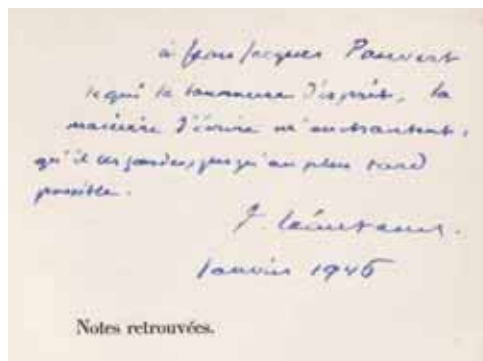 à Jean Jacques Pauvert
la tournure d'esprit, la
manière d'écrire m'enchantent,
qu'il les garde jusqu'au plus tard
possible.
J.
Janvier 1946
Notes retrouvées.